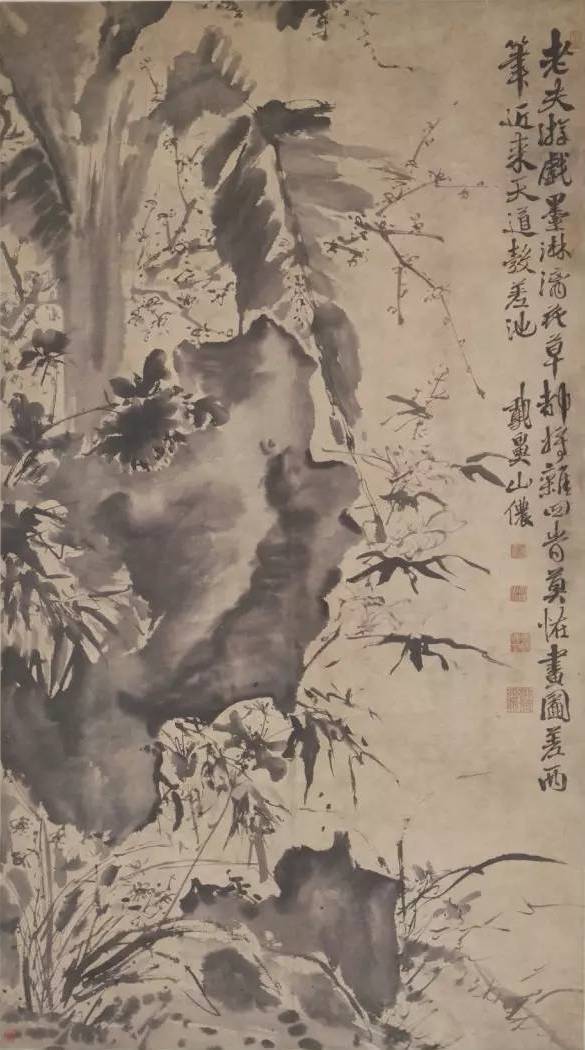 老夫游戲墨淋漓花草都將雜四旹莫恠畫圖差兩
筆近来天道彀差池
鵝鼻山儂